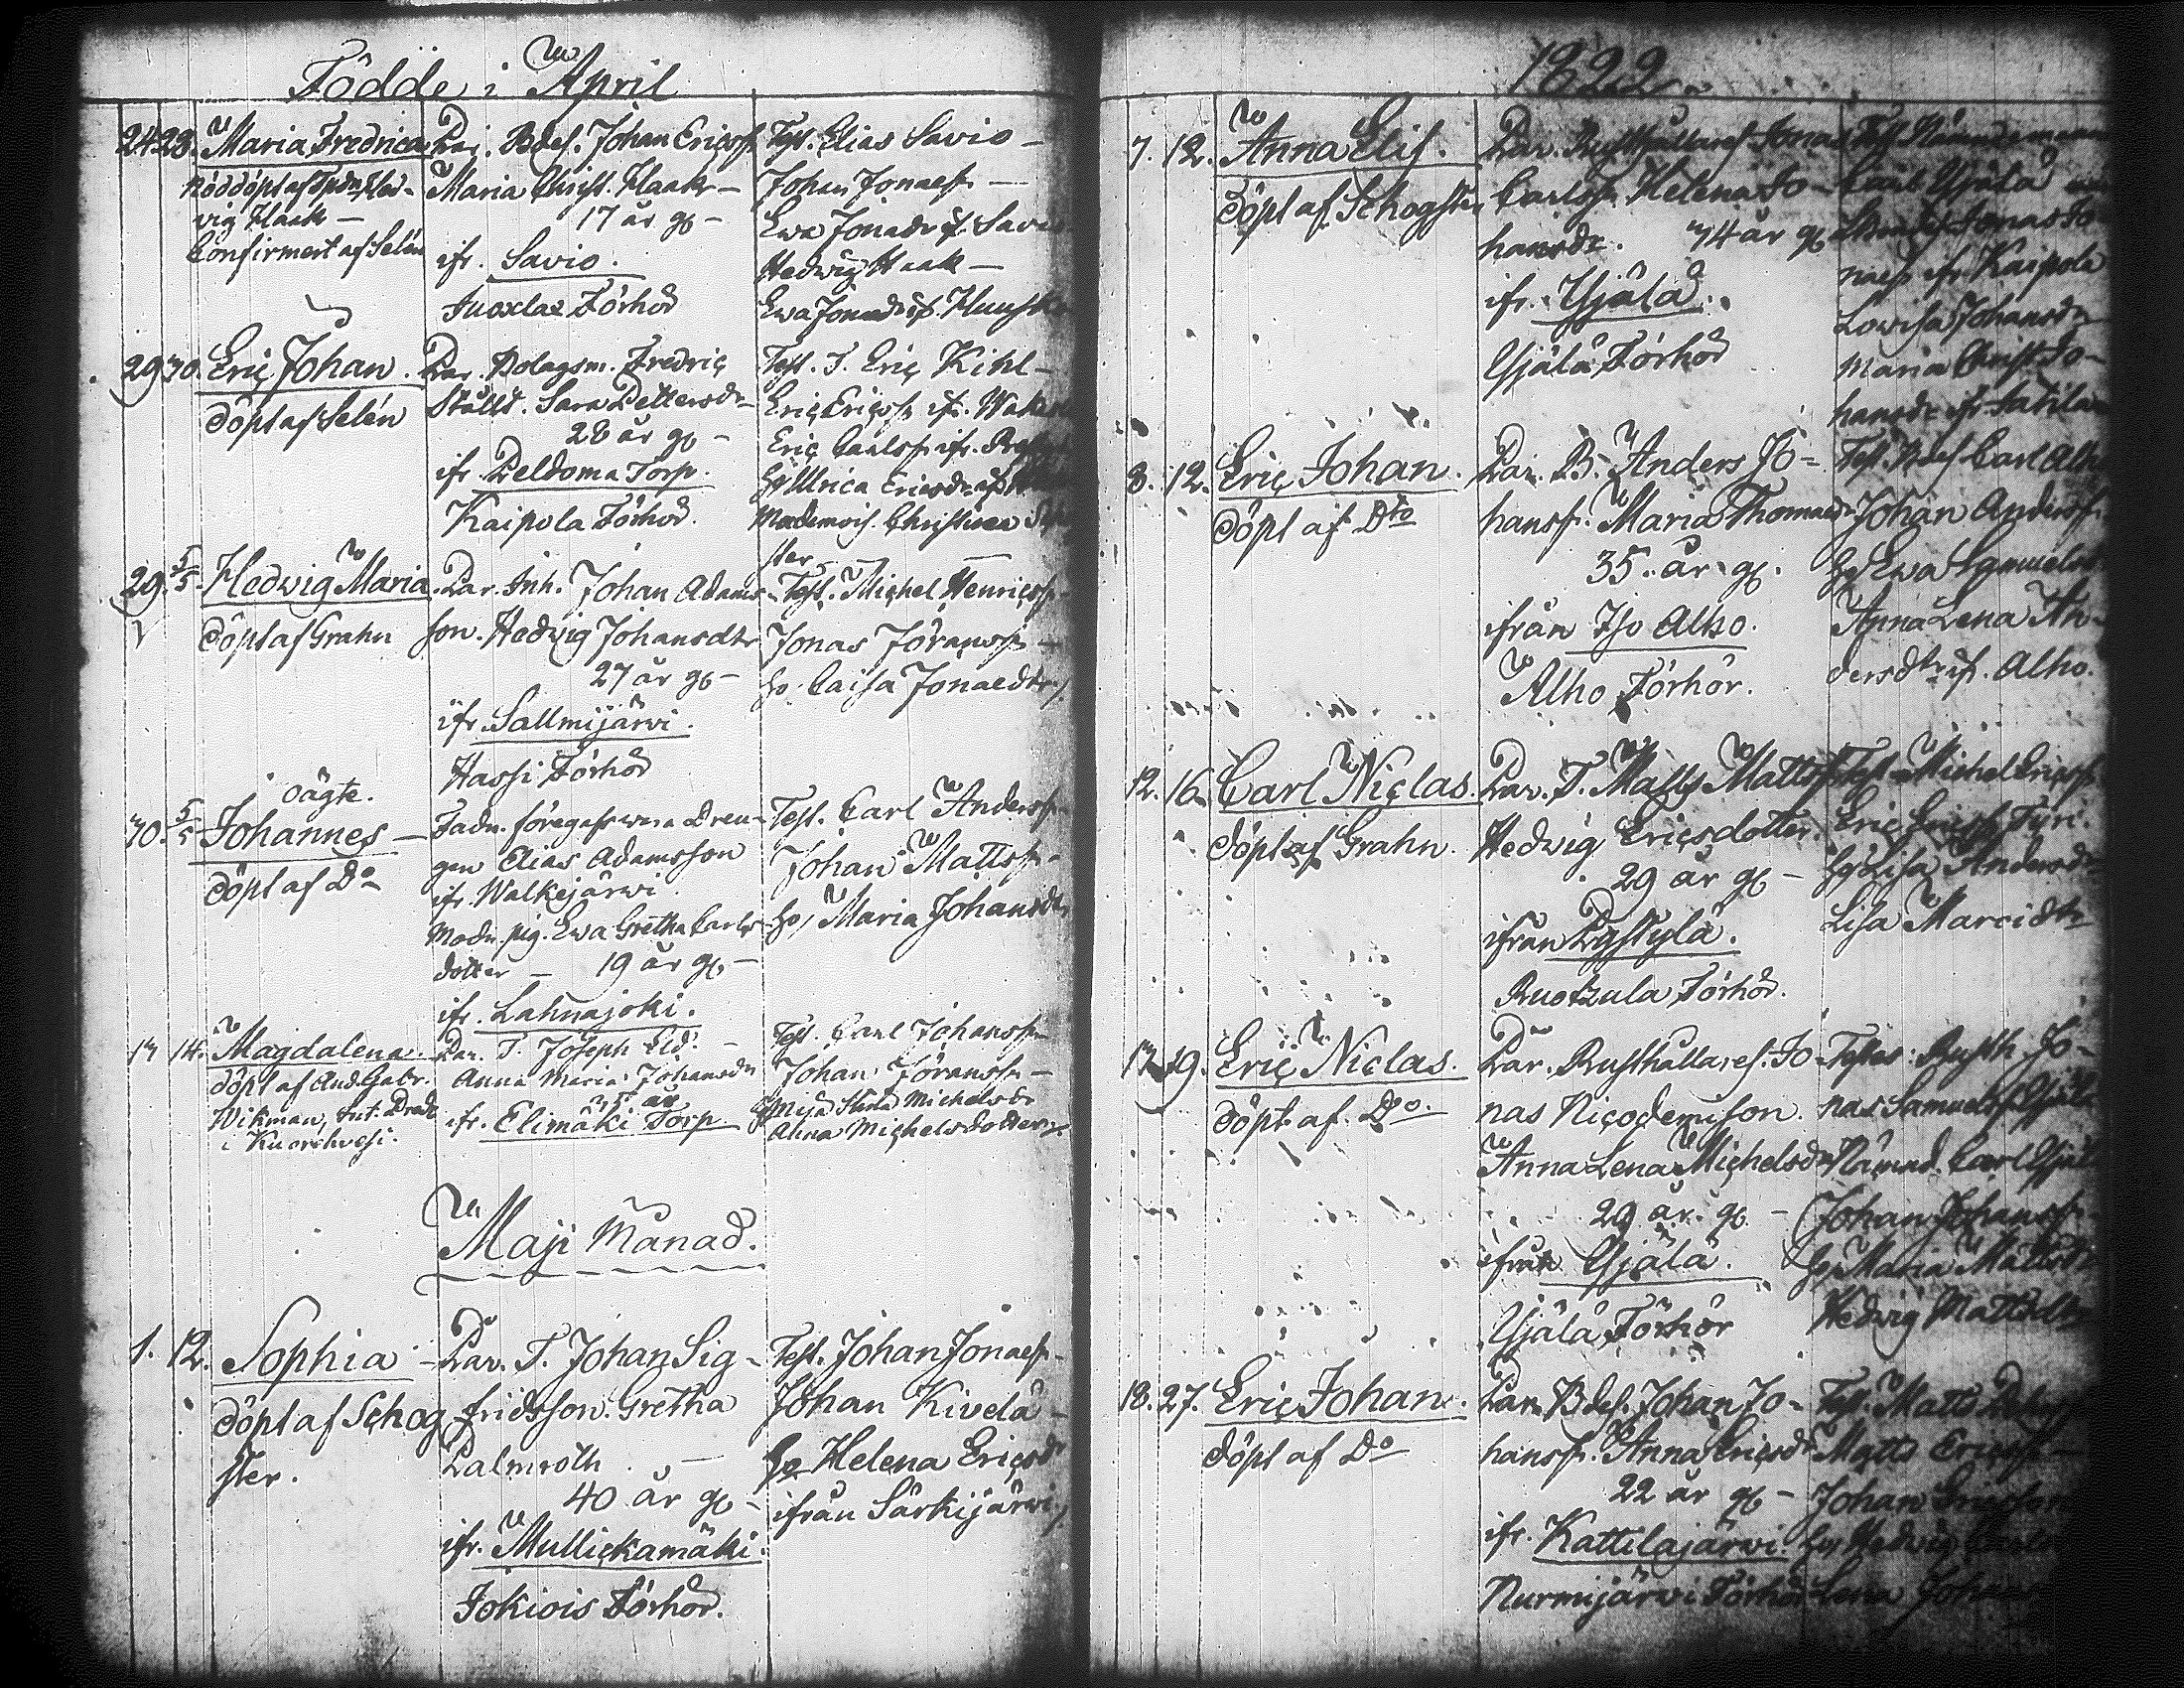 Födde i April
24. 28. Maria Fredrica
Nöddöpt af Hed-
vig Haak —
Confirmert af Selén
Par. Bdes. Johan Ericss
Maria Christ. Haak —
17 år gl —
ifr. Savio.
Juoxlax Förhör
Test. Elias Savio —
Johan Jonaes —
Ewa Jonaedr if. Savio
Hedwig Haak —
Ewa Jonaedr if.
29 30. Eric Johan.
döpt af Selén
Par. Bolagsm. Fredric
Stållt. Sara Pettersdr
28 år gl —
ifr Peldoma Torp.
Kaipola Förhör.
Test. T. Eric Kihl —
Eric Ericss ifr.
Eric Carlss ifr.
Hu Ulrica Ericsdr
Mademois. Christina
ster
29. 5/5. Hedwig Maria
döpt af Grahn
Par. Inh. Johan Adams-
son. Hedwig Johansdtr
27 år gl —
ifr. Sallmijärwi.
Hassi Förhör
Test. Michel Henricss
Jonas Jöranss —
Hu. Caisa Jonaedtr
oägte.
30. 5/5 Johannes —
döpt af Do
Fadr. föregifwen Dren-
gen Elias Adamsson
ifr. Walkejärwi
Modr. pig. Ewa Gretha Carls-
dotter — 19 år gl. —
ifr. Lahnajoki.
Test. Carl Anderss
Johan Mattss
Hu, Maria Johansdr
13 14. Magdalena
döpt af And. Gabr.
Wikman,
i Kuorehvesi.
Par. T. Joseph Eld.
Anna Maria Johansdr
35 år
ifr. Elimäki Torp
Test. Carl Johanss
Johan Jöranss —
Maja Stina Michelsdr
Anna Michelsdotter
Maji Månad.
1. 12. Sophia
döpt af Schog
ster.
Par. T. Johan Sig-
fridsson. Gretha
Palmroth —
40 år gl —
ifr. Mullickamäki.
Jokiois Förhör.
Test. Johan Jonaes
Johan Kivelä —
Hu Helena Ericsdr
ifrån Särkijärwi
1822
7. 12. Anna Elis.
döpt af Schogster
Par. Rusthållares. Jonas
Carlss. Helena Jo-
hansdr. 34 år gl
ifr. Yijälä.
Yijälä Förhör
Test. Nämndemann
Carl Yijälä
Jonas Jo-
naes ifr. Kaipola
Lowisa Johansdr
Maria Christ. Jo-
hansdr ifr.
8. 12. Eric Johan.
döpt af Dto
Par. B. Anders Jo-
hanss. Maria Thomaedr
35. år gl.
ifrån Iso Alho.
Alho Förhör.
Test. Bdes Carl Alho
Johan Anderss
Hu Ewa Samuelsdr
Anna Lena An-
dersdtr if. Alho.
12. 16. Carl Niclas.
döpt af Grahn.
Par. T. Matts Mattss
Hedwig Ericsdotter
29 år gl —
ifrån Pystylä.
Ruotzula Förhör.
Test. Michel Ericss
Eric Ericss
Hu Lisa Andersdr
Lisa Marcidtr
17. 19. Eric Niclas.
döpt. af Do.
Par. Rusthållares. Jo-
nas Nicodemison.
Anna Lena Michelsdr
29 år gl —
ifrån Yijälä.
Yijälä Förhör
Testes: Rusth. Jo-
nas Samuelss Yijälä
Nämnd. Carl Yijälä
Johan Johanss
Hu Maria Mattsdr
Hedwig Mattsdtr
18. 27. Eric Johan.
döpt af Do
Par. Bdes. Johan Jo-
hanss. Anna Ericsdr
22 år gl —
ifr. Kattilajärwi.
Nurmijärwi Förhör
Test. Matts
Matts Ericss
Johan Ericsson
Hu Hedwig
Lena Johans